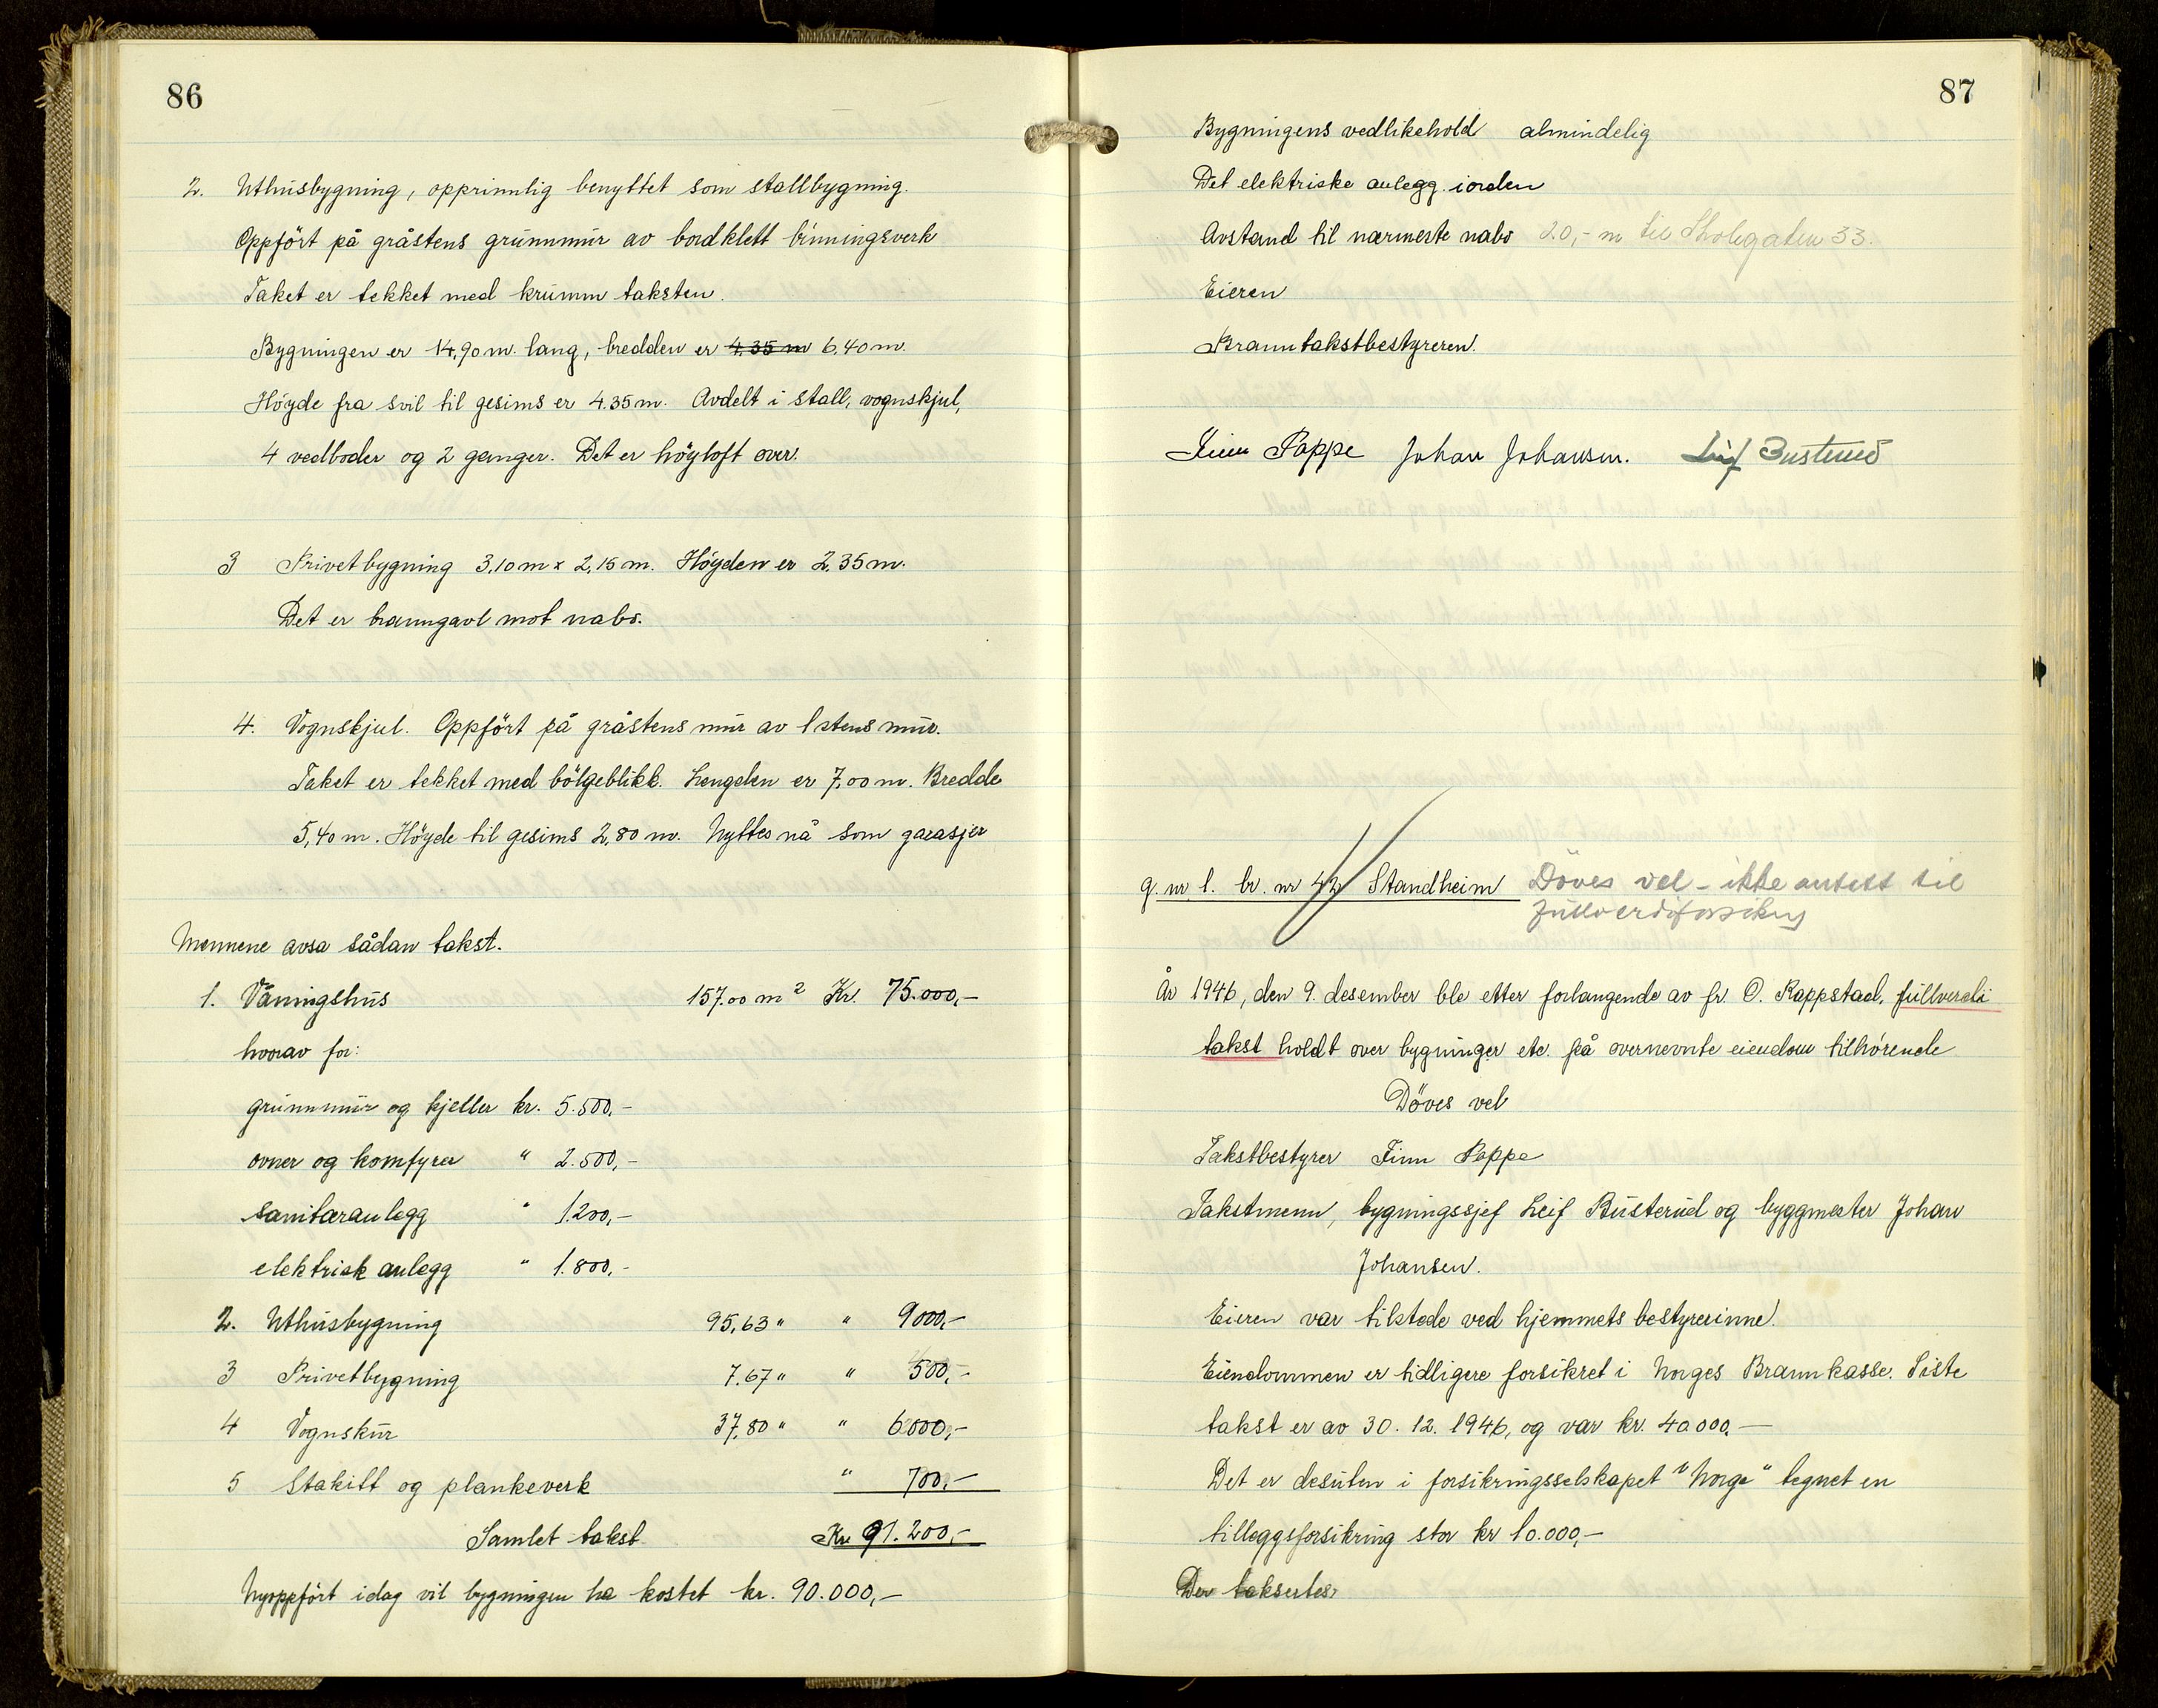 86
2. Uthusbygning, opprinnlig benyttet som stallbygning.
Oppfört på gråstens grunnmur av bordklett binningsverk
Taket er tekket med krumm taksten.
Bygningen er 14,90 m. lang, bredden er 4,35 m 6,40 m.
Höyde fra svil til gesims er 4.35 m. Avdelt i stall, vognskjul,
4 vedboder og 2 ganger. Det er höyloft over.
3 Privetbygning 3,10 m x 2,15 m. Höyden er 2,35 m.
Det er branngavl mot nabo.
4. Vognskjul. Oppfört på gråstens mur av 1 stens mur.
Taket er tekket med bölgeblikk. Lengden er 7,00 m. Bredde
5,40 m. Höyde til gesims 2,80 m. Nyttes nå som garasjer
Mennene avsa sådan takst.
1. Våningshus 157.00 m² Kr. 75.000,-
hvorav for:
grunnmur og kjeller kr. 5.500,-
ovner og komfyrer " 2.500,-
sanitæranlegg " 1.200,-
elektrisk anlegg " 1.800,-
2. Uthusbygning 95,63 " " 9000,-
3 Privetbygning 7.67 " " 500,-
4 Vognskur 37,80 " " 6000,-
5 Stakitt og plankeverk " 700,-
Samlet takst Kr 91.200,-
Nyoppfört idag vil bygningen ha kostet kr. 90.000,-
87
Bygningens vedlikehold almindelig
Det elektriske anlegg iorden
Avstand til nærmeste nabo 20,- m til Skolegaten 33.
Eieren
Branntakstbestyreren.
Finn Pappe Johan Johansen. Leif Busterud
g. nr. 1. br. nr 42 Standheim Döves vel - ikke antatt til
fullverdiforsikring
År 1946, den 9. desember ble etter forlangende av fr. O. Rappstad, fullverdi
takst holdt over bygninger etc. på overnevnte eiendom tilhörende
Döves vel
Takstbestyrer Finn Pappe
Takstmenn, bygningssjef Leif Busterud og byggmester Johan
Johansen.
Eieren var tilstede ved hjemmets bestyrerinne.
Eiendommen er tidligere forsikret i Norges Brannkasse. Siste
takst er av 30. 12. 1946, og var kr. 40000.—
Det er desuten i forsikringsselskapet "Norge" tegnet en
tilleggsforsikring stor kr 10.000,-
Der taksertes: